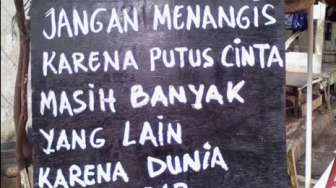 JANGAN MENANGIS
KARENA PUTUS CINTA
MASIH BANYAK
YANG LAIN
KARENA DUNIA